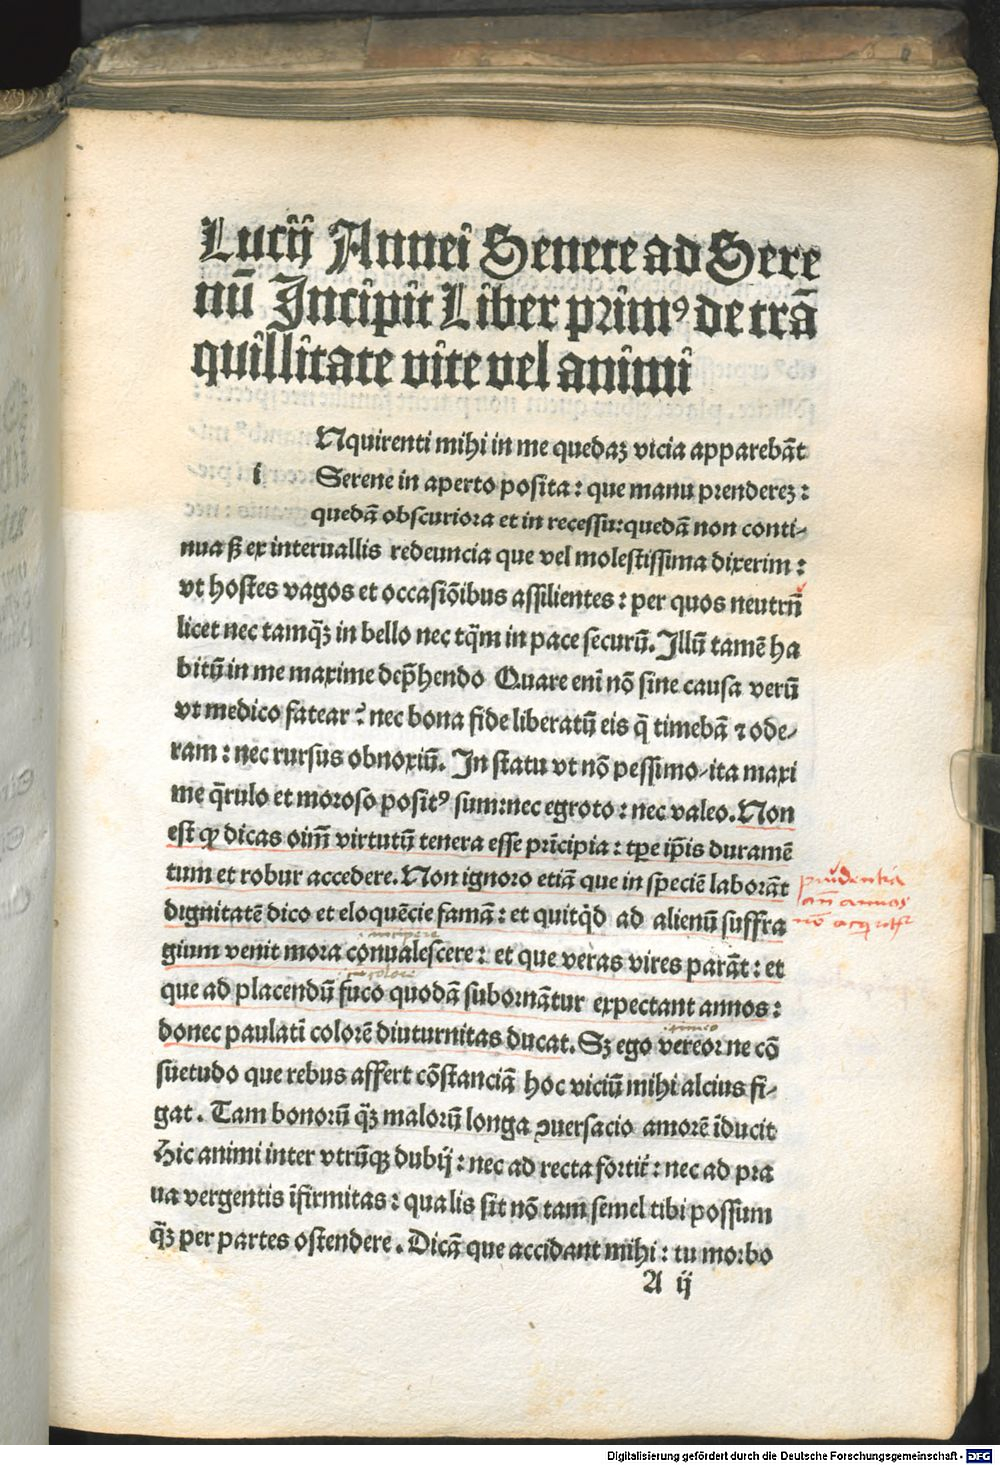 Lucij Annei Senece ad Sere
nū Incipit Liber primꝰ de trā
quillitate vite vel animi
Nquirenti mihi in me quedaꝫ vicia apparebāt
i
Serene in aperto posita: que manu prendereꝫ:
quedā obscuriora et in recessu: quedā non conti-
nua sꝫ ex interuallis redeuncia que vel molestissima dixerim:
vt hostes vagos et occasiōibus assilientes: per quos neutrū
licet nec tamqꝫ in bello nec tq̄m in pace securū. Illū tamē ha
bitū in me maxime dep̄hendo Quare enī nō sine causa verū
vt medico fatear: nec bona fide liberatū eis q̄ timebā ⁊ ode-
ram: nec rursus obnoxiū. In statu vt nō pessimo ita maxi
me q̄rulo et moroso positꝰ sum: nec egroto: nec valeo. Non
est ꝙ dicas oīm̄ virtutū tenera esse pri̅cipia: tp̄e ip̄is duramē
tum et robur accedere. Non ignoro etiā que in speciē laborāt
dignitatē dico et eloquēcie famā: et quitq̇d ad alienū suffra
gium venit mora conualescere: et que veras vires parāt: et
que ad placendū fuco quodā subornātur expectant annos:
donec paulatī colorē diuturnitas ducat. Sꝫ ego vereor ne cō
suetudo que rebus affert cōstanciā hoc viciū mihi alcius fi-
gat. Tam bonorū qꝫ malorū longa ꝯuersacio amorē īducit
Hic animi inter vtrūqꝫ dubij: nec ad recta fortīt: nec ad pra
ua vergentis īfirmitas: qualis sit nō tam semel tibi possum
qꝫ per partes ostendere. Dicā que accidant mihi: tu morbo
A ij
prudentia
an̄ annos
nō acq̇rit̄
.i. incipere
.i. colore
.i. timeo
Digitalisierung gefördert durch die Deutsche Forschungsgemeinschaft - DFG